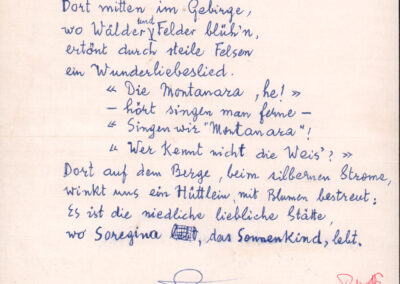 Dort mitten im Gebirge,
wo Wälder und Felder blüh'n,
ertönt durch steile Felsen
ein Wunderliebeslied.
« Die Montanara, he! »
– hört singen man ferne –
« Singen wir "Montanara"!
« Wer kennt nicht die Weis'? »
Dort auf dem Berge, beim silbernen Strome,
winkt uns ein Hüttlein, mit Blumen bestreut;
Es ist die niedliche liebliche Stätte,
wo Soregina, das Sonnenkind, lebt.